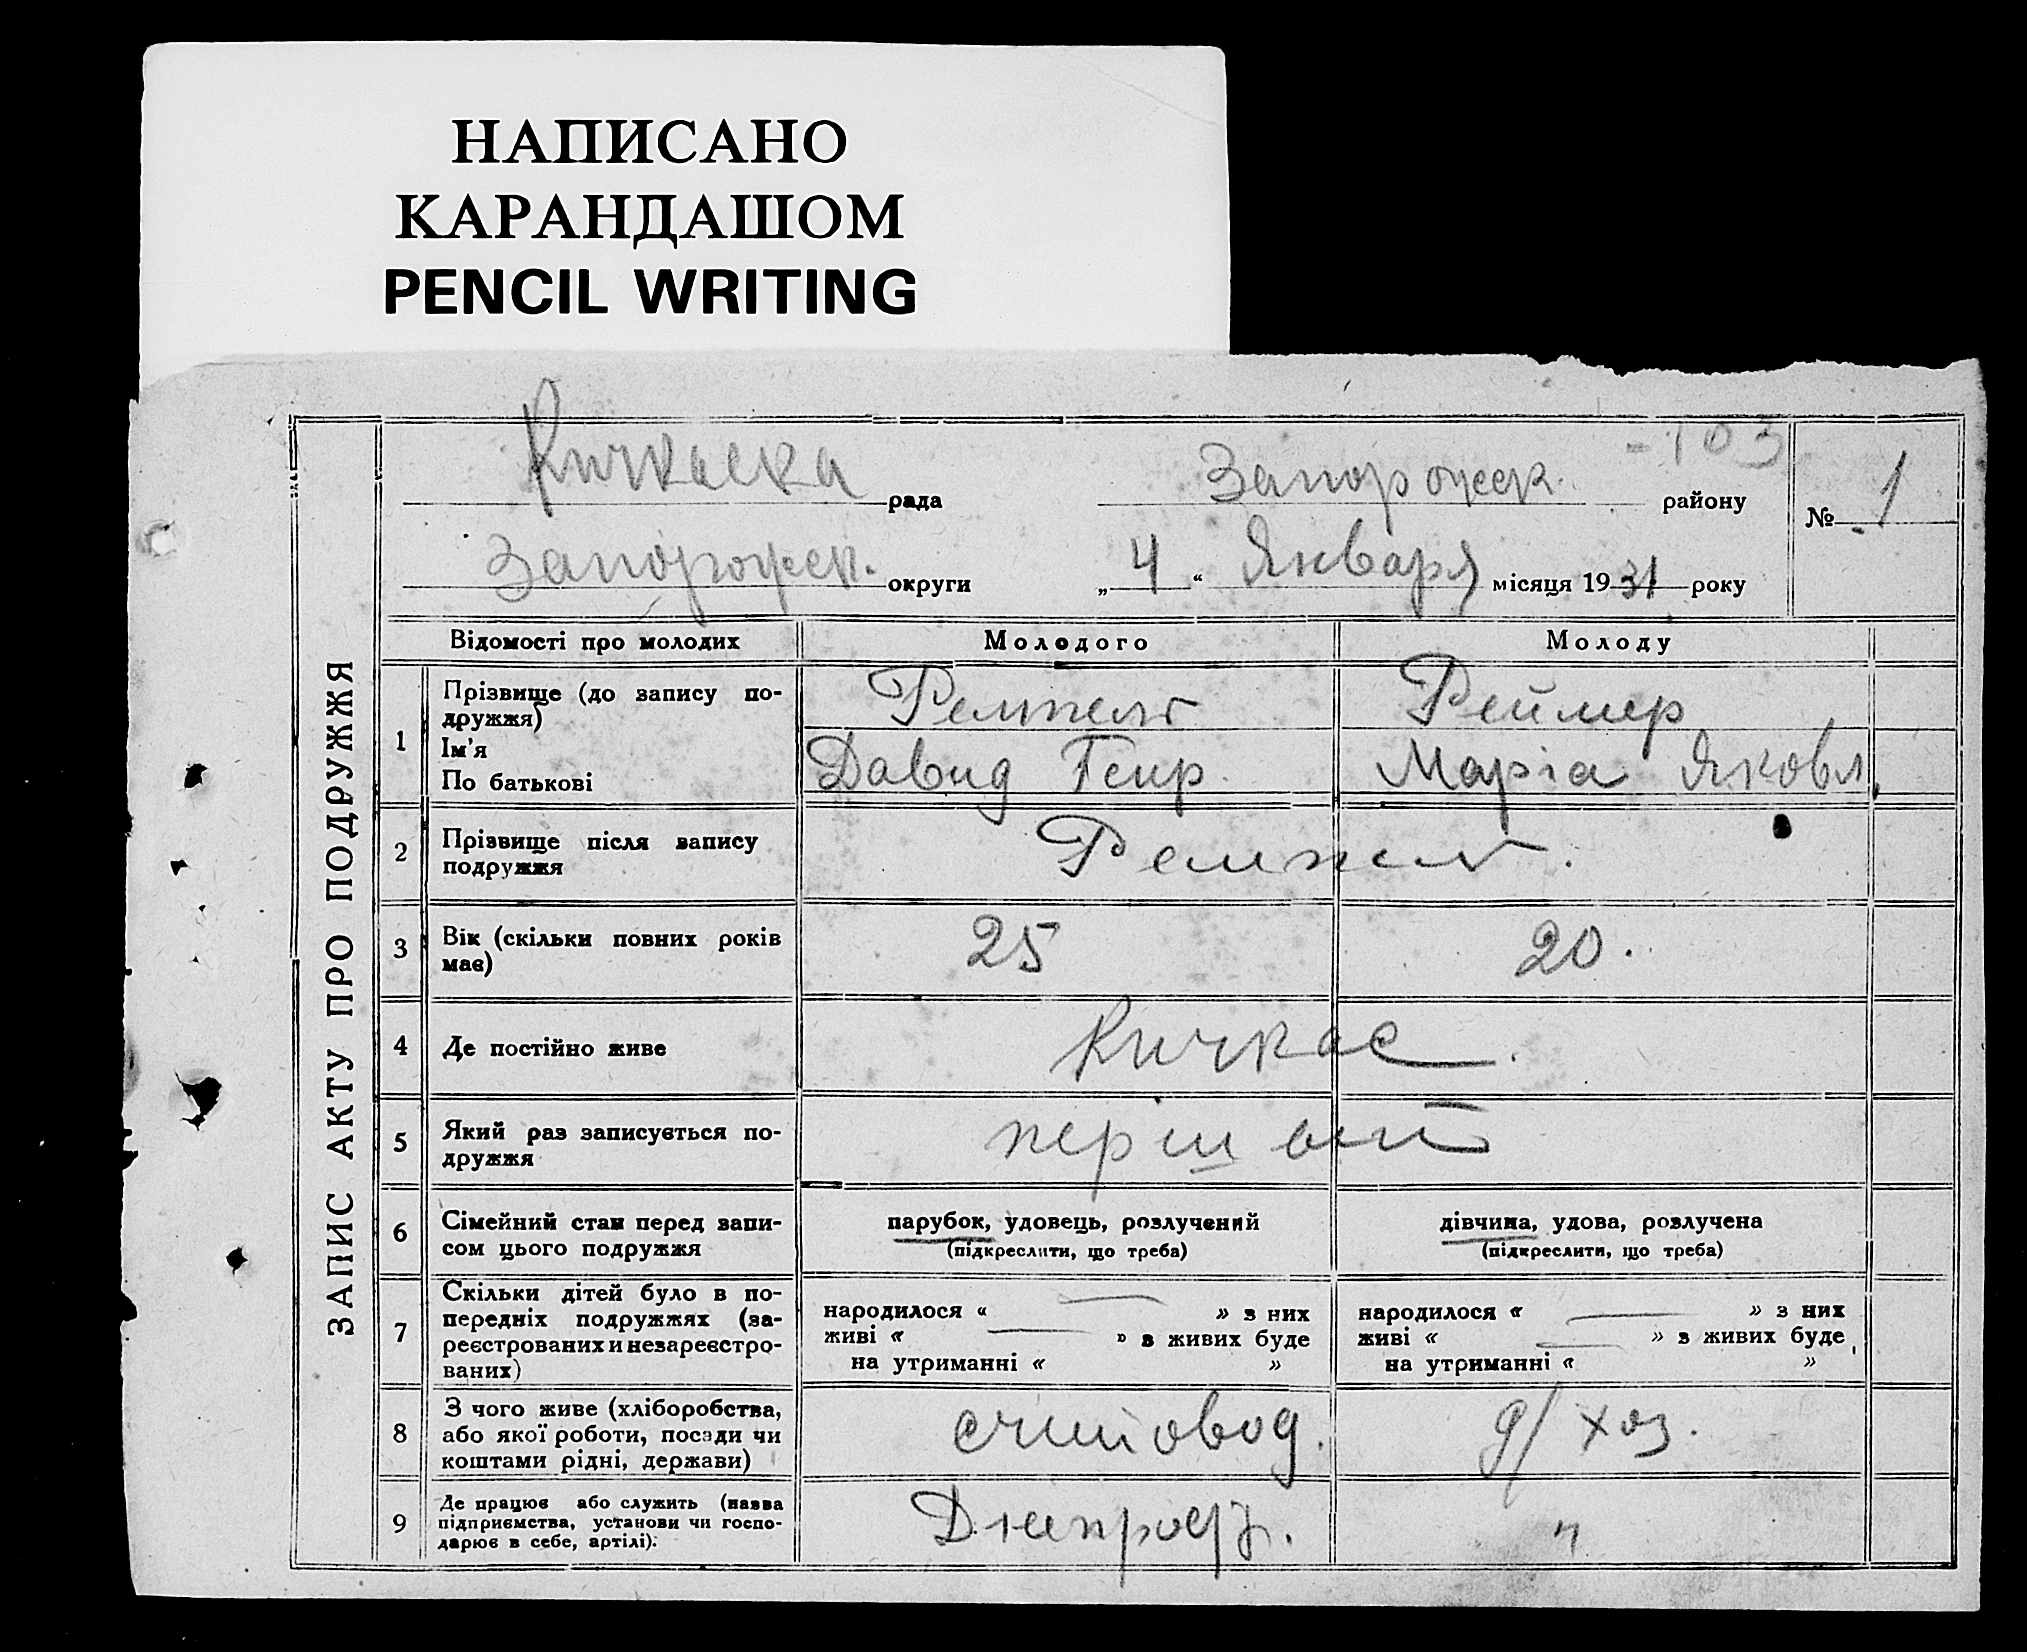 НАПИСАНО
КАРАНДАШОМ
PENCIL WRITING
- 103
Кичкаска рада Запорожск. району
№ 1
Запорожск. округи „ 4 “ Января місяця 1931 року
ЗАПИС АКТУ ПРО ПОДРУЖЖЯ
Відомості про молодих Молодого Молоду
1 Прізвище (до запису по-
дружжя) Ремпель Реймер
Ім'я
По батькові Давид Генр. Маріа Яковл.
2 Прізвище після запису
подружжя Ремпель.
3 Вік (скільки повних років
має) 25 20.
4 Де постійно живе Кичкас.
5 Який раз записується по-
дружжя першый
6 Сімейний стан перед запи-
сом цього подружжя
парубок, удовець, розлучений дівчина, удова, розлучена
(підкреслити, що треба) (підкреслити, що треба)
7 Скільки дітей було в по-
передніх подружжях (за-
реєстрованих и незареєстро-
ваних)
народилося « — » з них народилося « — » з них
живі « — » з живих буде живі « — » з живих буде
на утриманні « » на утриманні « »
8 З чого живе (хліборобства,
або якої роботи, посади чи
коштами рідні, держави) считовод. д/хоз.
9 Де працює або служить (назва
підприємства, установи чи госпо-
дарює в себе, артілі): "